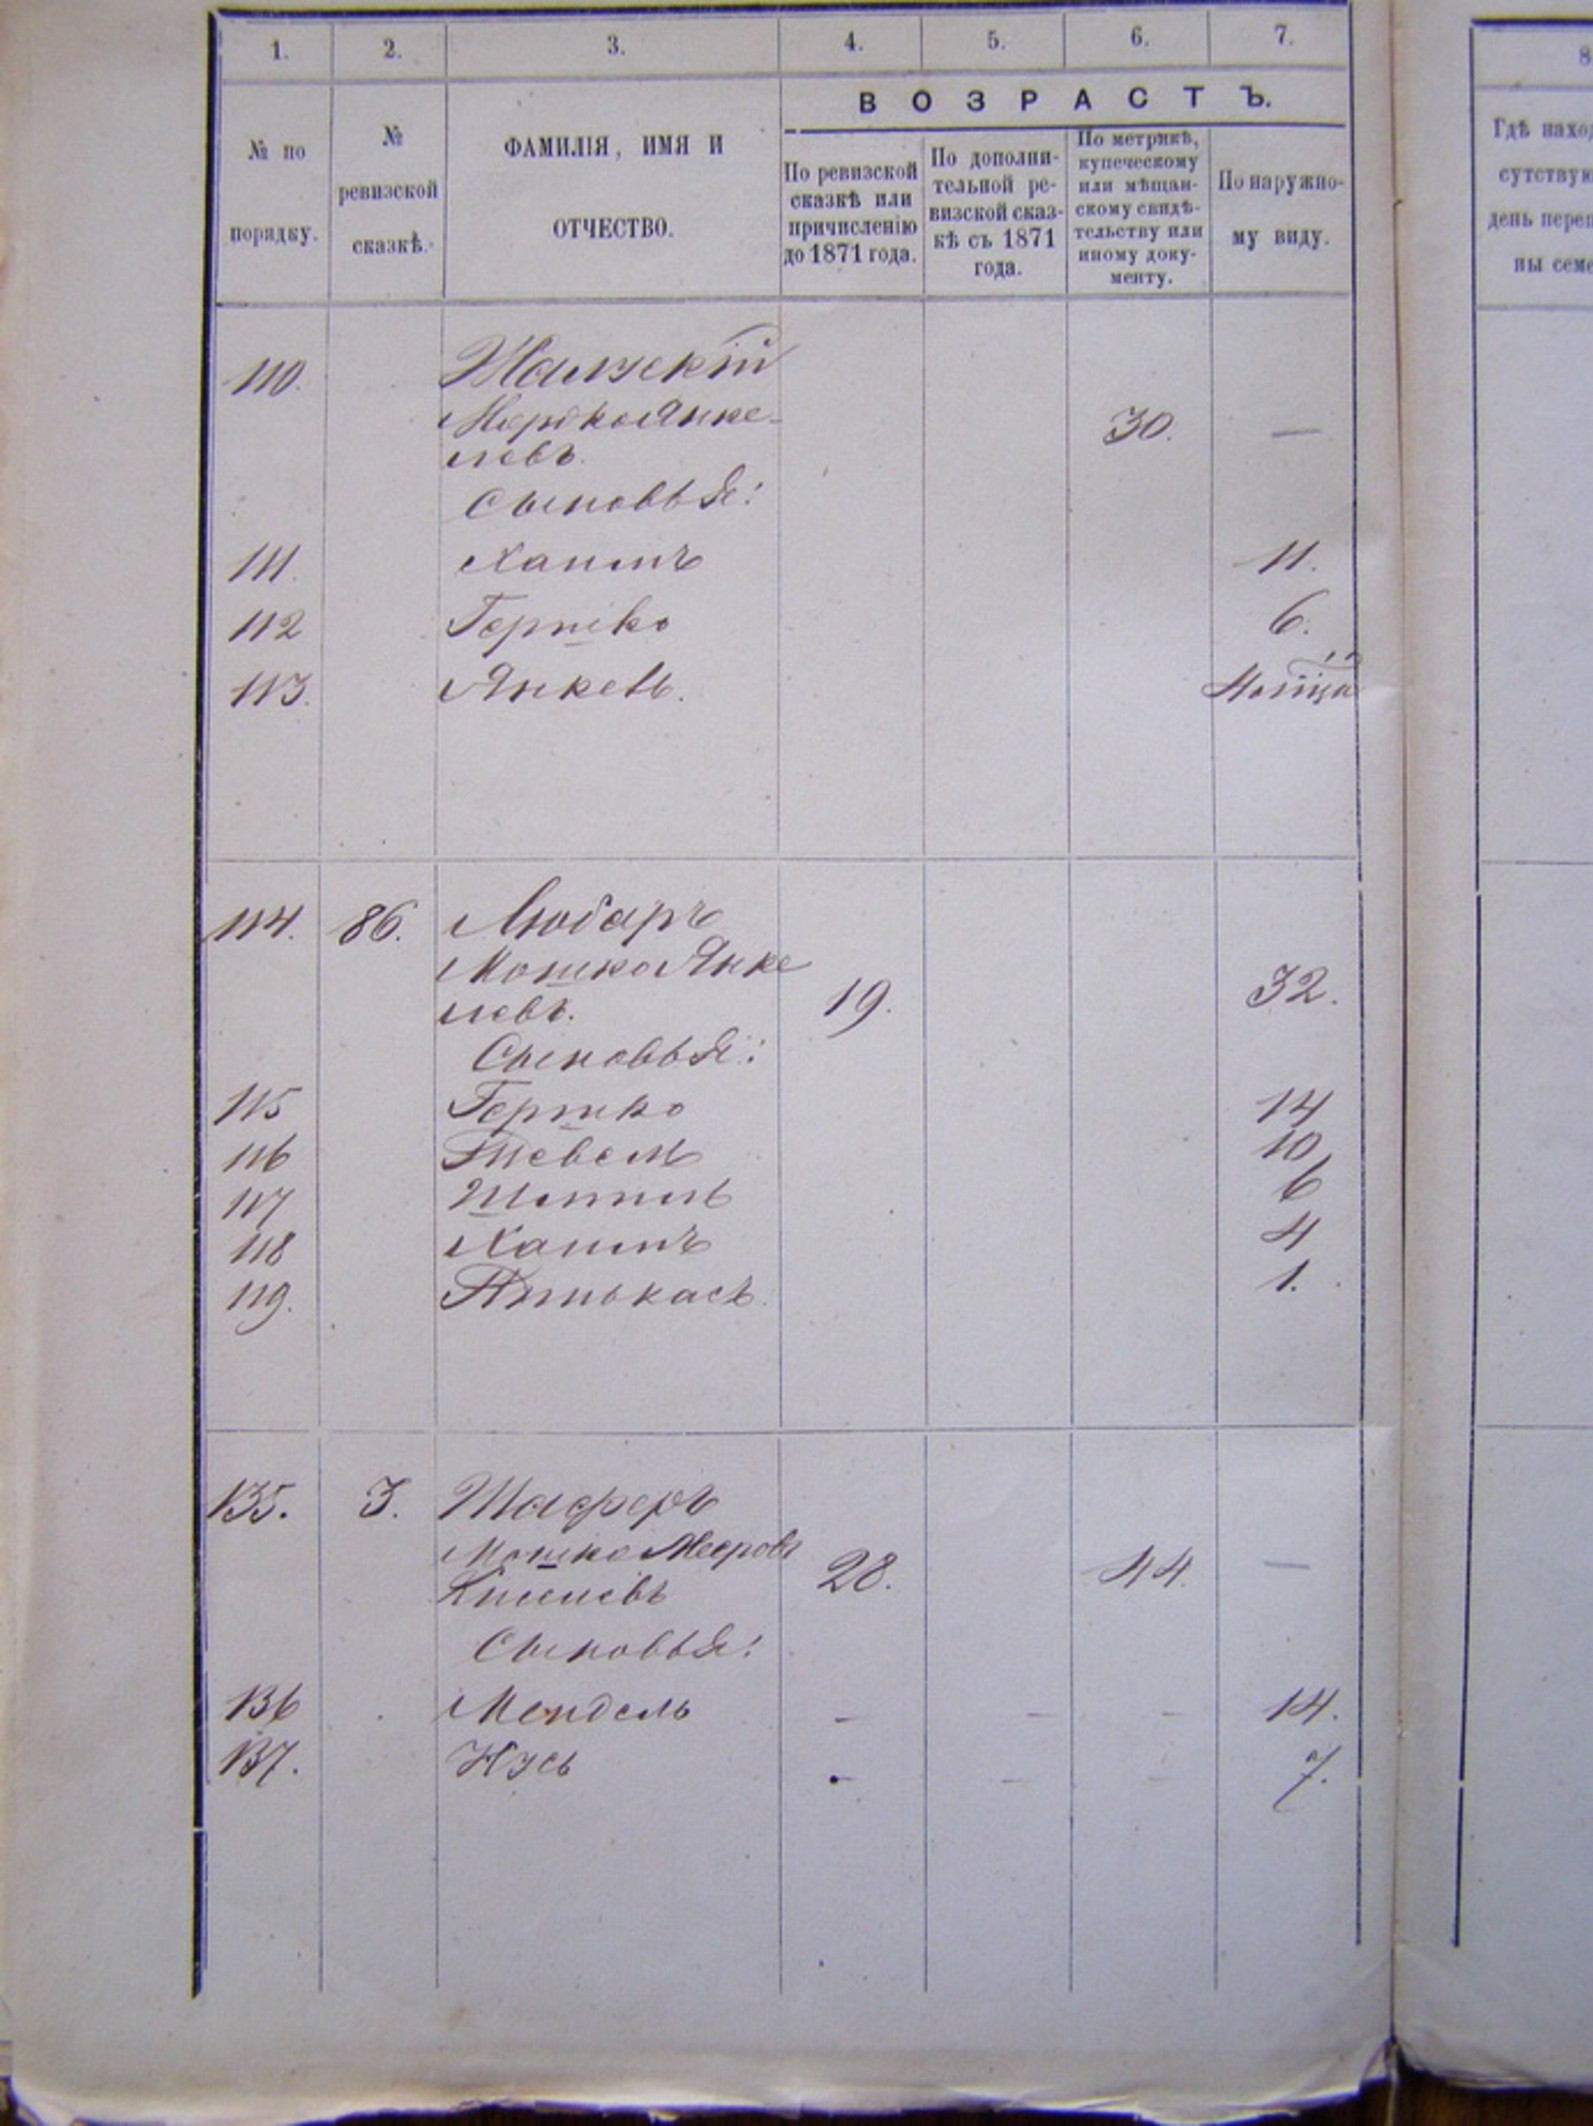 1. 2. 3. 4. 5. 6. 7.
8
№ по порядку.
№ ревизской сказкѣ.
ФАМИЛІЯ, ИМЯ И ОТЧЕСТВО.
ВОЗРАСТЪ.
По ревизской
сказкѣ или
причисленію
до 1871 года.
По дополни-
тельной ре-
визской сказ-
кѣ съ 1871
года.
По метрикѣ,
купеческому
или мѣщан-
скому свидѣ-
тельству или
иному доку-
менту.
По наружно-
му виду.
Гдѣ наход
сутствую
день переп
ны семе
110.
Мордко Янке-
левъ. 30. —
Сыновья:
111. Хаимъ 11.
112 Гершко 6.
113. Янкель.
114. 86. Любаръ
Мошко Янке
левъ. 19. 32.
Сыновья:
115 Гершко 14
116 Тевель 10
117 6
118 Хаимъ 4
119. Пинькасъ. 1.
135. 3. Шаферъ
Мошко Мееровъ
28. 44. —
Сыновья:
136 Мендель — — — 14.
137. Нусь — — — 7.